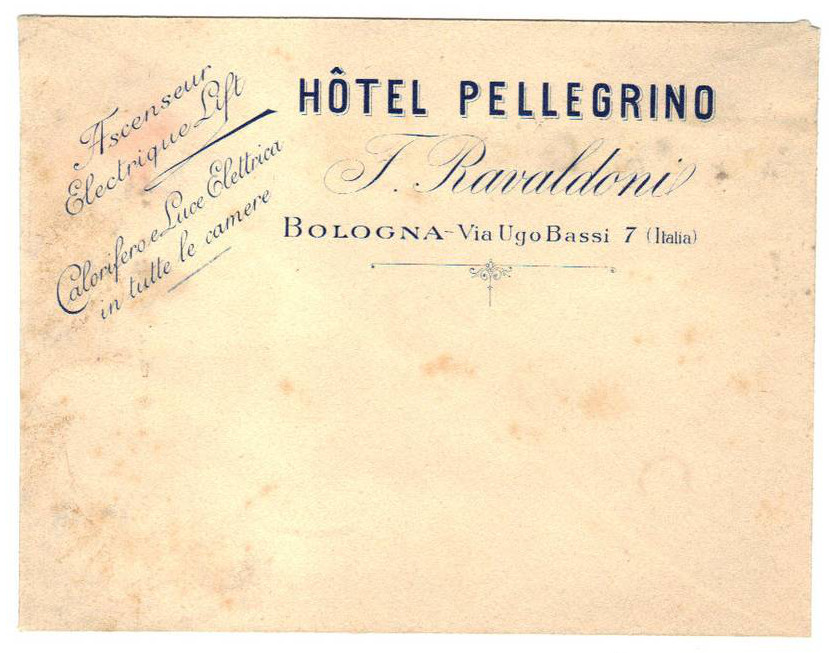 Ascenseur
Electrique Lift
Calorifero e Luce Elettrica
in tutte le camere
HÔTEL PELLEGRINO
F. Ravaldoni
BOLOGNA - Via Ugo Bassi 7 (Italia)